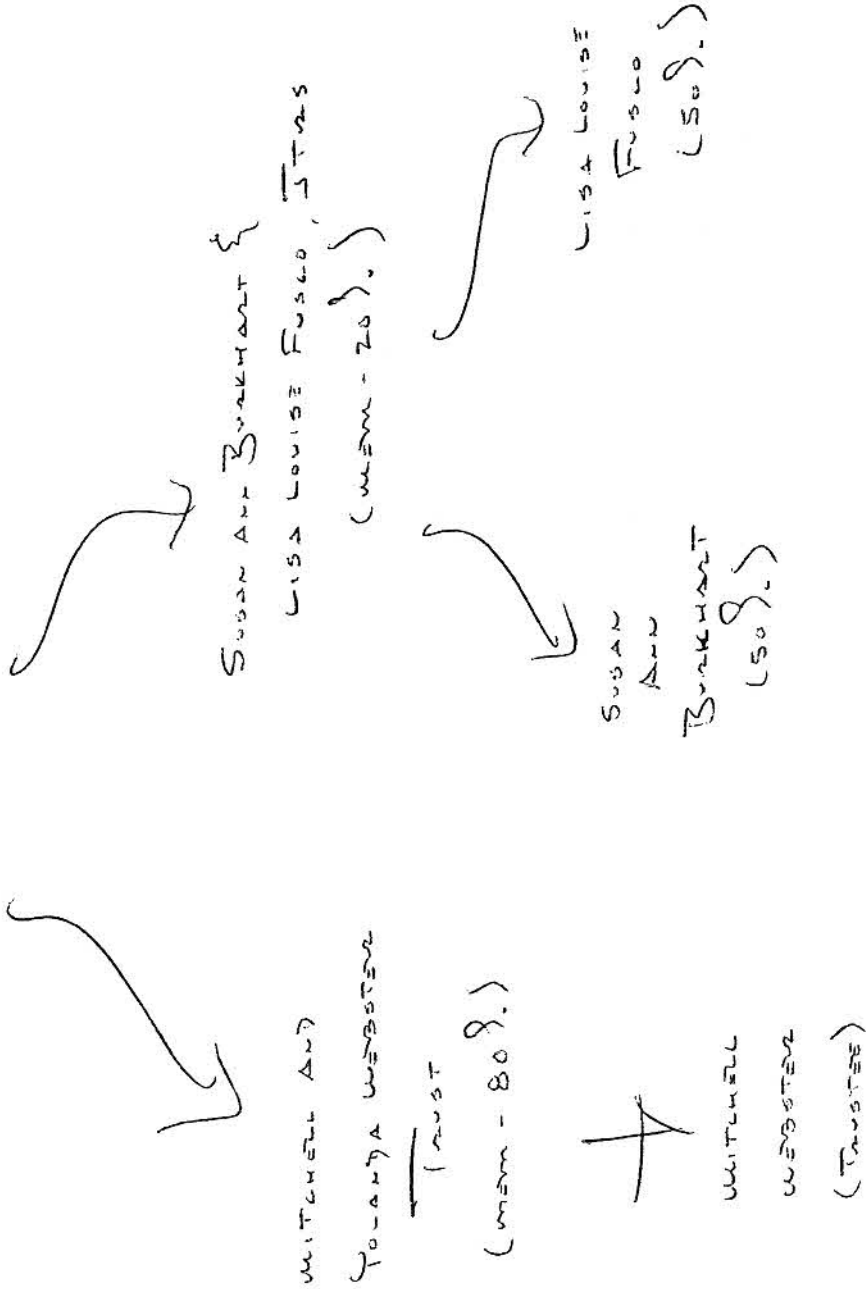 MITCHELL AND
YOLANDA WEBSTER
TRUST
(MEM - 80%)
MITCHELL
WEBSTER
(TRUSTEE)
SUSAN ANN BURKHART &
LISA LOUISE FUSCO, JTRS
(MEM - 20%)
SUSAN
ANN
BURKHART
(50%)
LISA LOUISE
FUSCO
(50%)